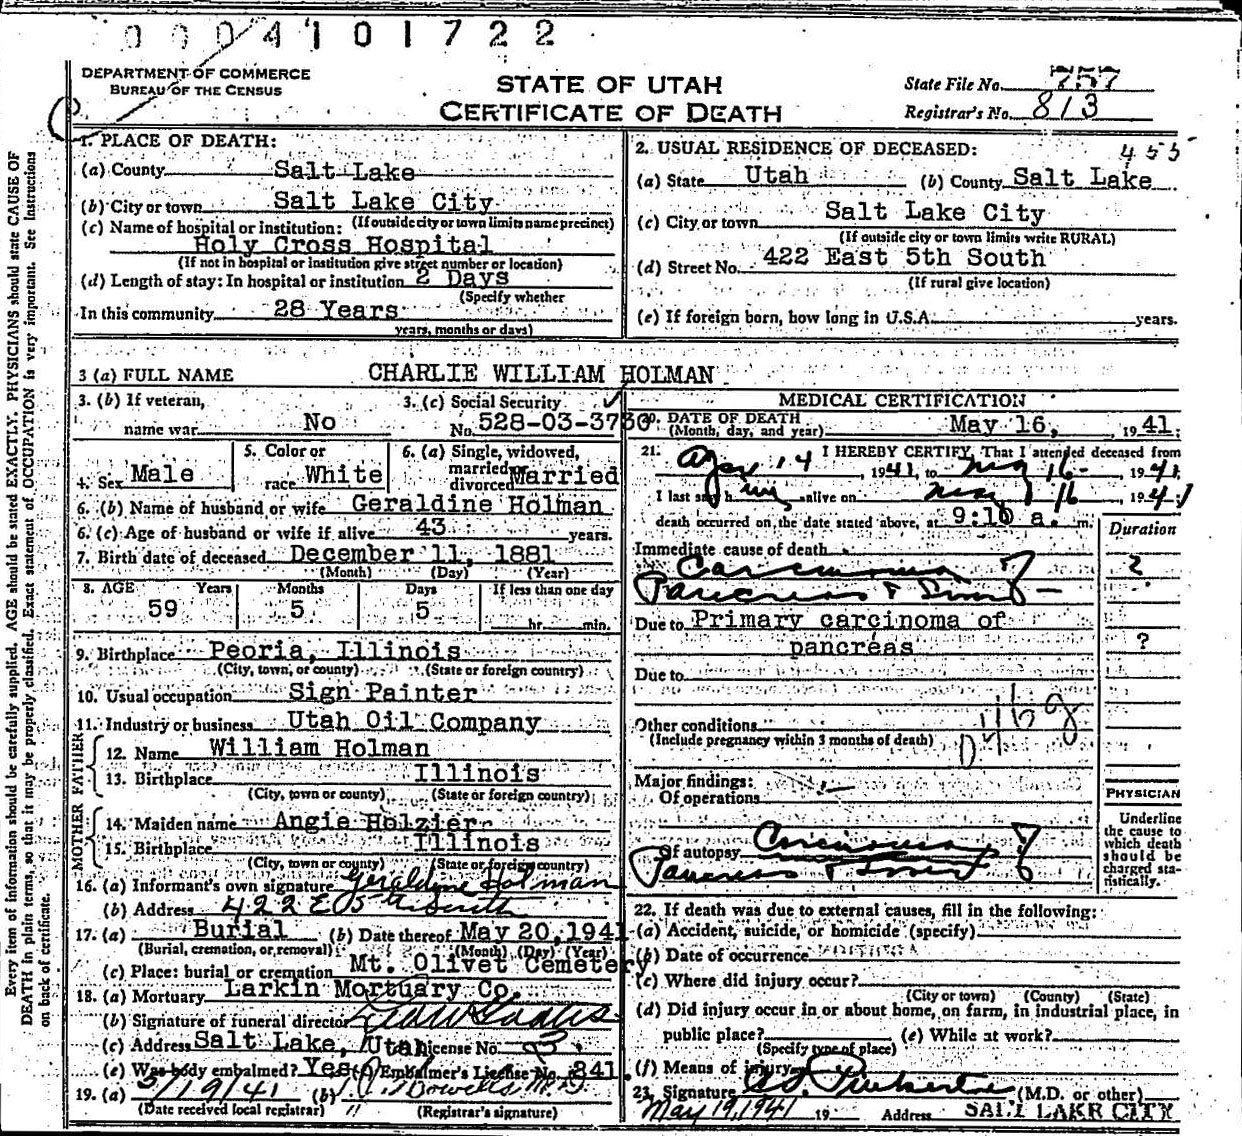 0004101722
DEPARTMENT OF COMMERCE
BUREAU OF THE CENSUS
STATE OF UTAH
CERTIFICATE OF DEATH
State File No. 757
Registrar's No. 813
1. PLACE OF DEATH:
(a) County Salt Lake
(b) City or town Salt Lake City
(If outside city or town limits name precinct)
(c) Name of hospital or institution:
Holy Cross Hospital
(If not in hospital or institution give street number or location)
(d) Length of stay: In hospital or institution 2 Days
(Specify whether
In this community 28 Years
years, months or days)
2. USUAL RESIDENCE OF DECEASED: 455
(a) State Utah (b) County Salt Lake
(c) City or town Salt Lake City
(If outside city or town limits write RURAL)
(d) Street No. 422 East 5th South
(If rural give location)
(e) If foreign born, how long in U.S.A. years.
3 (a) FULL NAME CHARLIE WILLIAM HOLMAN
3. (b) If veteran,
name war No
3. (c) Social Security
No. 528-03-3730
4. Sex Male
5. Color or
race White
6. (a) Single, widowed,
married or
divorced Married
6. (b) Name of husband or wife Geraldine Holman
6. (c) Age of husband or wife if alive 43 years.
7. Birth date of deceased December 11, 1881
(Month) (Day) (Year)
8. AGE Years Months Days If less than one day
59 5 5 hr. min.
9. Birthplace Peoria, Illinois
(City, town, or county) (State or foreign country)
10. Usual occupation Sign Painter
11. Industry or business Utah Oil Company
FATHER
12. Name William Holman
13. Birthplace Illinois
(City, town or county) (State or foreign country)
MOTHER
14. Maiden name Angie Holzier
15. Birthplace Illinois
(City, town or county) (State or foreign country)
16. (a) Informant's own signature Geraldine Holman
(b) Address 422 E 5th South
17. (a) Burial (b) Date thereof May 20, 1941
(Burial, cremation, or removal) (Month) (Day) (Year)
(c) Place: burial or cremation Mt. Olivet Cemetery
18. (a) Mortuary Larkin Mortuary Co.
(b) Signature of funeral director
(c) Address Salt Lake, Utah License No. 3
(e) Was body embalmed? Yes (f) Embalmer's License No. 341
19. (a) 5/19/41 (b)
(Date received local registrar) (Registrar's signature)
MEDICAL CERTIFICATION
20. DATE OF DEATH
(Month, day, and year) May 16, 1941.
21. I HEREBY CERTIFY, That I attended deceased from
14, 1941, to May 16 1941
I last saw him alive on May 16 1941
death occurred on the date stated above, at 9:10 a. m.
Duration
Immediate cause of death
Carcinoma of ?
Pancreas &
Due to Primary carcinoma of
pancreas ?
Due to
Other conditions
(Include pregnancy within 3 months of death)
046g
Major findings:
Of operations
Of autopsy Carcinoma of
Pancreas &
PHYSICIAN
Underline
the cause to
which death
should be
charged sta-
tistically.
22. If death was due to external causes, fill in the following:
(a) Accident, suicide, or homicide (specify)
(b) Date of occurrence
(c) Where did injury occur?
(City or town) (County) (State)
(d) Did injury occur in or about home, on farm, in industrial place, in
public place? (e) While at work?
(Specify type of place)
(f) Means of injury
23. Signature (M.D. or other)
May 19, 1941 19 Address SALT LAKE CITY
Every item of information should be carefully supplied. AGE should be stated EXACTLY. PHYSICIANS should state CAUSE OF
DEATH in plain terms, so that it may be properly classified. Exact statement of OCCUPATION is very important. See Instructions
on back of certificate.